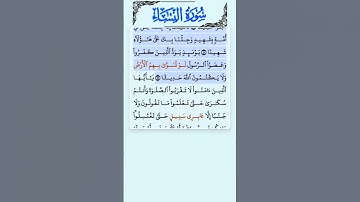 سُورَةُ النِّسَاءِ
أُمَّةٍۭ بِشَهِيدٍ وَجِئْنَا بِكَ عَلَىٰ هَٰٓؤُلَآءِ
شَهِيدًا ۝ يَوْمَئِذٍ يَوَدُّ ٱلَّذِينَ كَفَرُوا۟
وَعَصَوُا۟ ٱلرَّسُولَ لَوْ تُسَوَّىٰ بِهِمُ ٱلْأَرْضُ
وَلَا يَكْتُمُونَ ٱللَّهَ حَدِيثًا ۝ يَٰٓأَيُّهَا
ٱلَّذِينَ ءَامَنُوا۟ لَا تَقْرَبُوا۟ ٱلصَّلَوٰةَ وَأَنتُمْ
سُكَٰرَىٰ حَتَّىٰ تَعْلَمُوا۟ مَا تَقُولُونَ وَلَا
جُنُبًا إِلَّا عَابِرِى سَبِيلٍ حَتَّىٰ تَغْتَسِلُوا۟